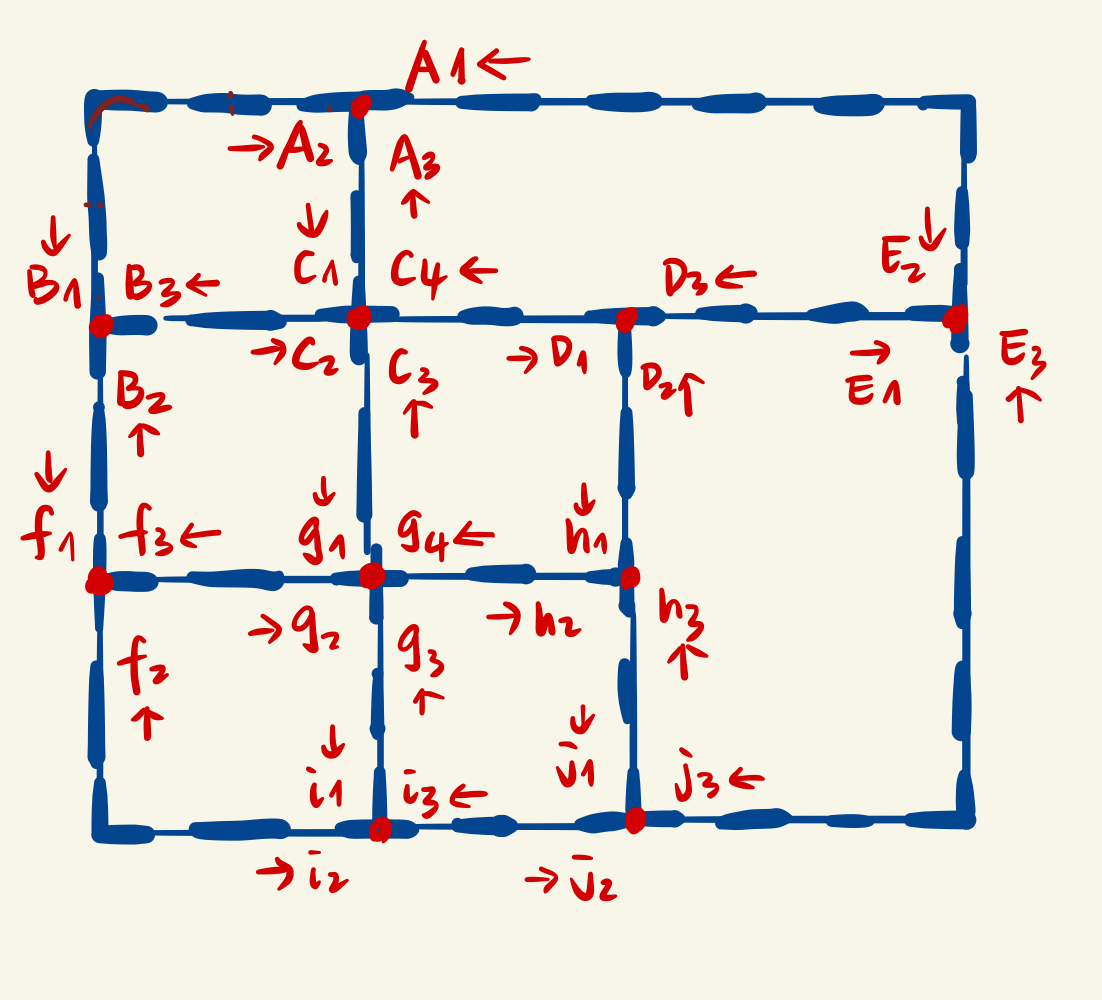 A1←
→A2
A3
↑
↓
B1
B3←
↓
C1
C4←
D3←
↓
E2
→C2
C3
↑
→D1
D2↑
→
E1
E3
↑
B2
↑
↓
f1
f3←
↓
g1
g4←
↓
h1
→g2
g3
↑
→h2
h3
↑
f2
↑
↓
i1
i3←
↓
j1
j3←
→i2
→j2